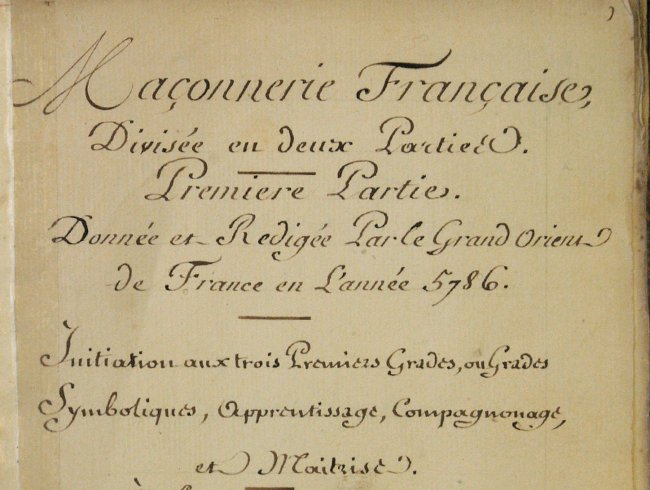 Maçonnerie Française,
Divisée en deux Parties.
Premiere Partie.
Donnée et Redigée Par le Grand Orient
de France en L'année 5786.
Initiation aux trois Premiers Grades, ou Grades
Symboliques, Apprentissage, Compagnonage,
et Maitrise.